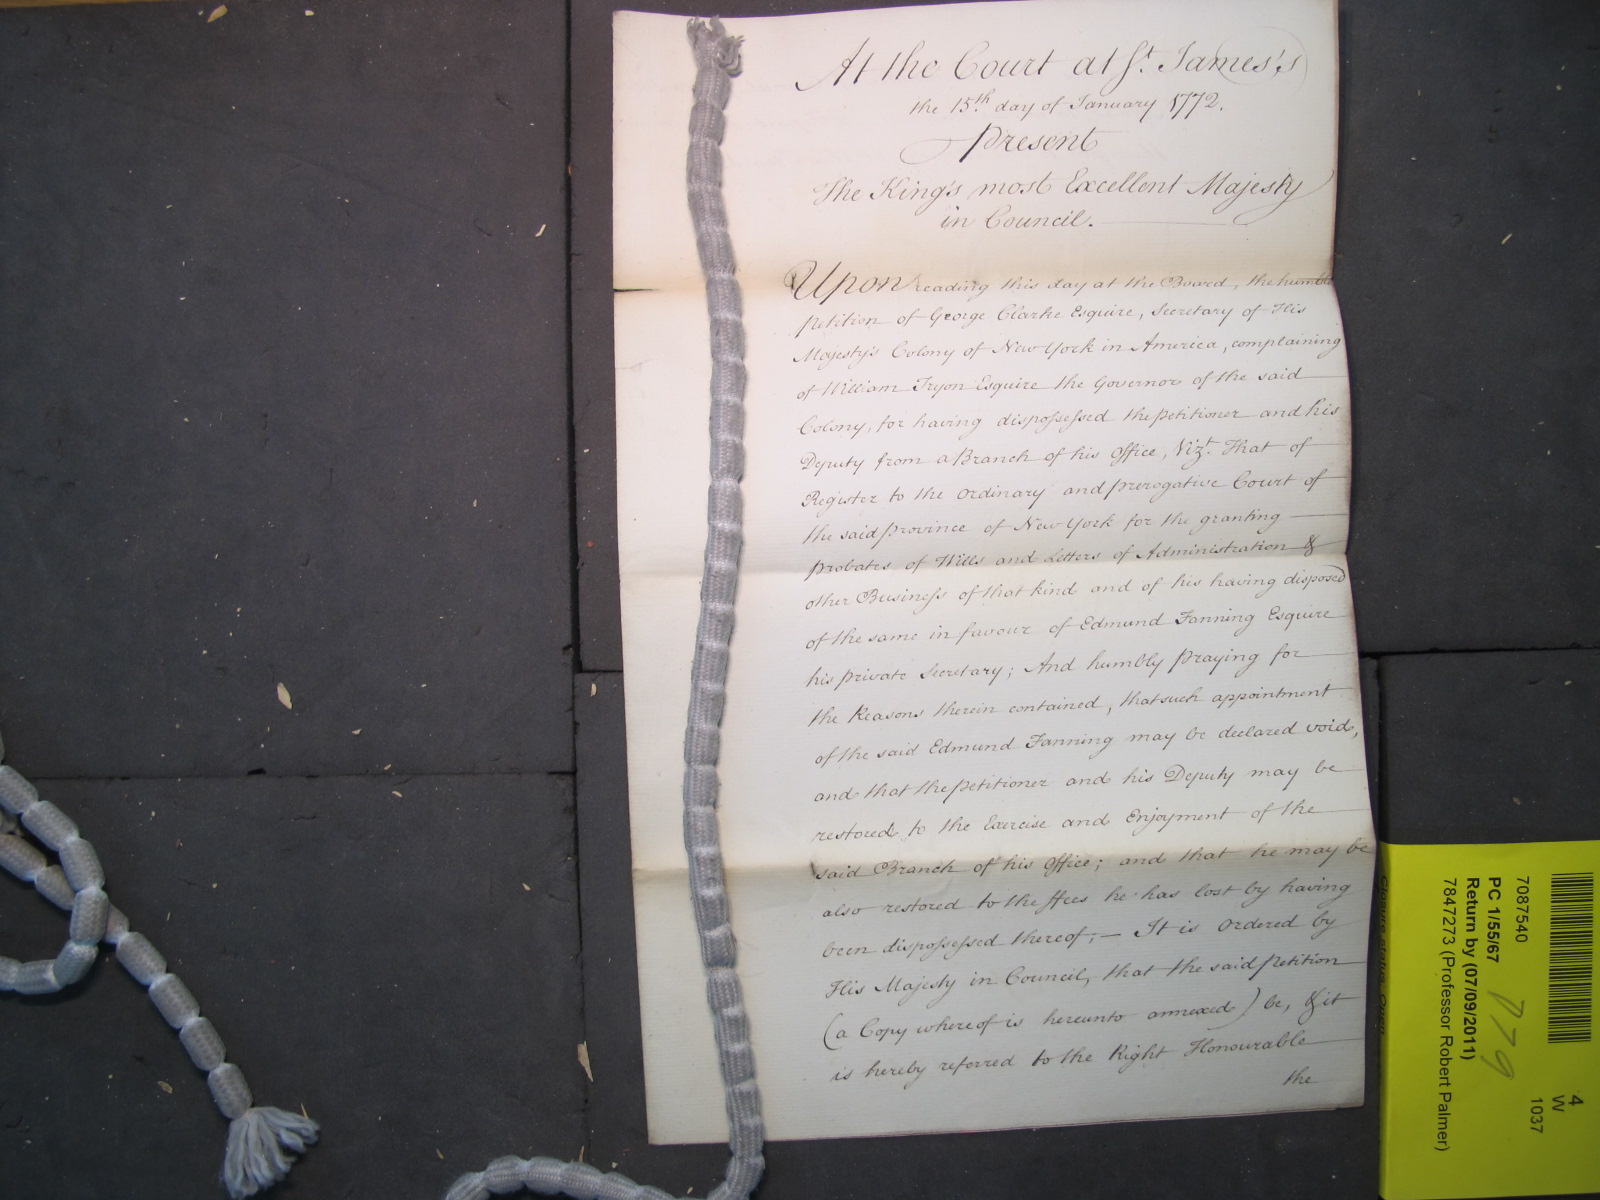 At the Court at St. James's
the 15th. day of January 1772.
Present
The King's most Excellent Majesty
in Council.
Upon reading this day at the Board, the humble
Petition of George Clarke Esquire, Secretary of His
Majesty's Colony of New York in America, complaining
of William Tryon Esquire the Governor of the said
Colony, for having dispossessed the Petitioner and his
Deputy from a Branch of his Office, Vizt. That of
Register to the Ordinary and Prerogative Court of
the said Province of New York for the granting
Probates of Wills and Letters of Administration &
other Business of that kind and of his having disposed
of the same in favour of Edmund Fanning Esquire
his private Secretary; And humbly Praying for
the Reasons therein contained, that such appointment
of the said Edmund Fanning may be declared void,
and that the Petitioner and his Deputy may be
restored to the Exercise and Enjoyment of the
said Branch of his Office; and that he may be
also restored to the ffees he has lost by having
been dispossessed thereof; — It is Ordered by
His Majesty in Council, that the said Petition
(a Copy whereof is hereunto annexed) be, & it
is hereby referred to the Right Honourable
the
7087540
PC 1/55/67
Return by (07/09/2011)
7847273 (Professor Robert Palmer)
Closure status: Open
4
W
1037